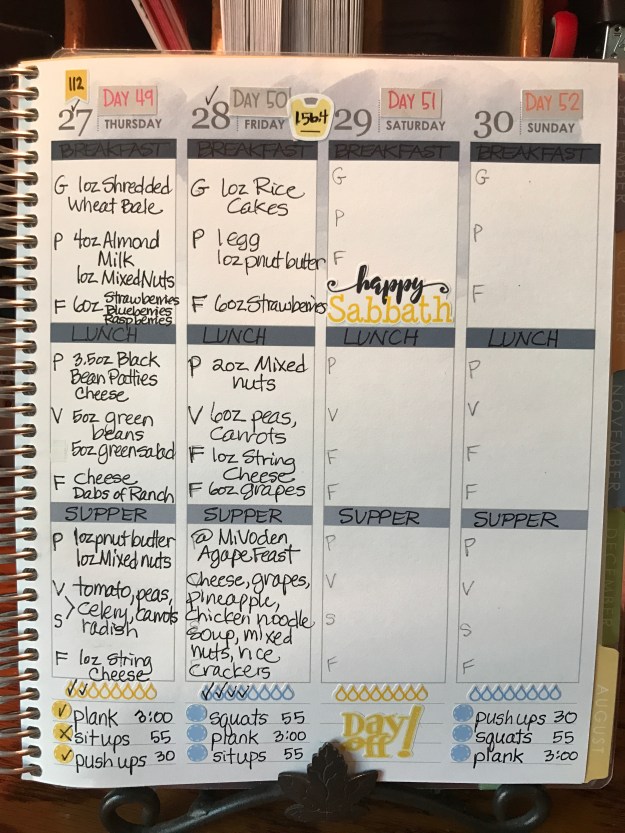 112
DAY 49
27
THURSDAY
BREAKFAST
G 1oz Shredded
Wheat Bale
P 4oz Almond
Milk
1oz Mixed Nuts
F 6oz Strawberries
Blueberries
Raspberries
LUNCH
P 3.5oz Black
Bean Patties
Cheese
V 5oz green
beans
5oz green salad
F Cheese
Dabs of Ranch
SUPPER
P 1oz pnut butter
1oz Mixed nuts
V tomato, peas,
S Celery, carrots
radish
F 1oz String
Cheese
plank 3:00
situps 55
pushups 30
DAY 50
28
FRIDAY
156.4
BREAKFAST
G 1oz Rice
Cakes
P 1 egg
1oz pnut butter
F 6oz Strawberries
LUNCH
P 2oz Mixed
nuts
V 6oz peas,
Carrots
F 1oz String
Cheese
F 6oz grapes
SUPPER
@ MiVoden
Agape Feast
Cheese, grapes,
Pineapple,
Chicken noodle
Soup, mixed
nuts, rice
crackers
squats 55
plank 3:00
situps 55
DAY 51
29
SATURDAY
BREAKFAST
G
P
F
happy
Sabbath
LUNCH
P
V
F
F
SUPPER
P
V
S
F
Day
off!
DAY 52
30
SUNDAY
BREAKFAST
G
P
F
LUNCH
P
V
F
F
SUPPER
P
V
S
F
pushups 30
squats 55
plank 3:00
NOVEMBER
DECEMBER
AUGUST